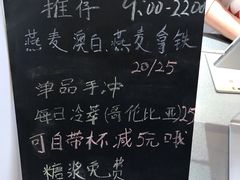 推仔 9:00-22:00
燕麦澳白.燕麦拿铁
20/25
单品手冲
每日冷萃(哥伦比亚)25
可自带杯减5元哦
糖浆免费